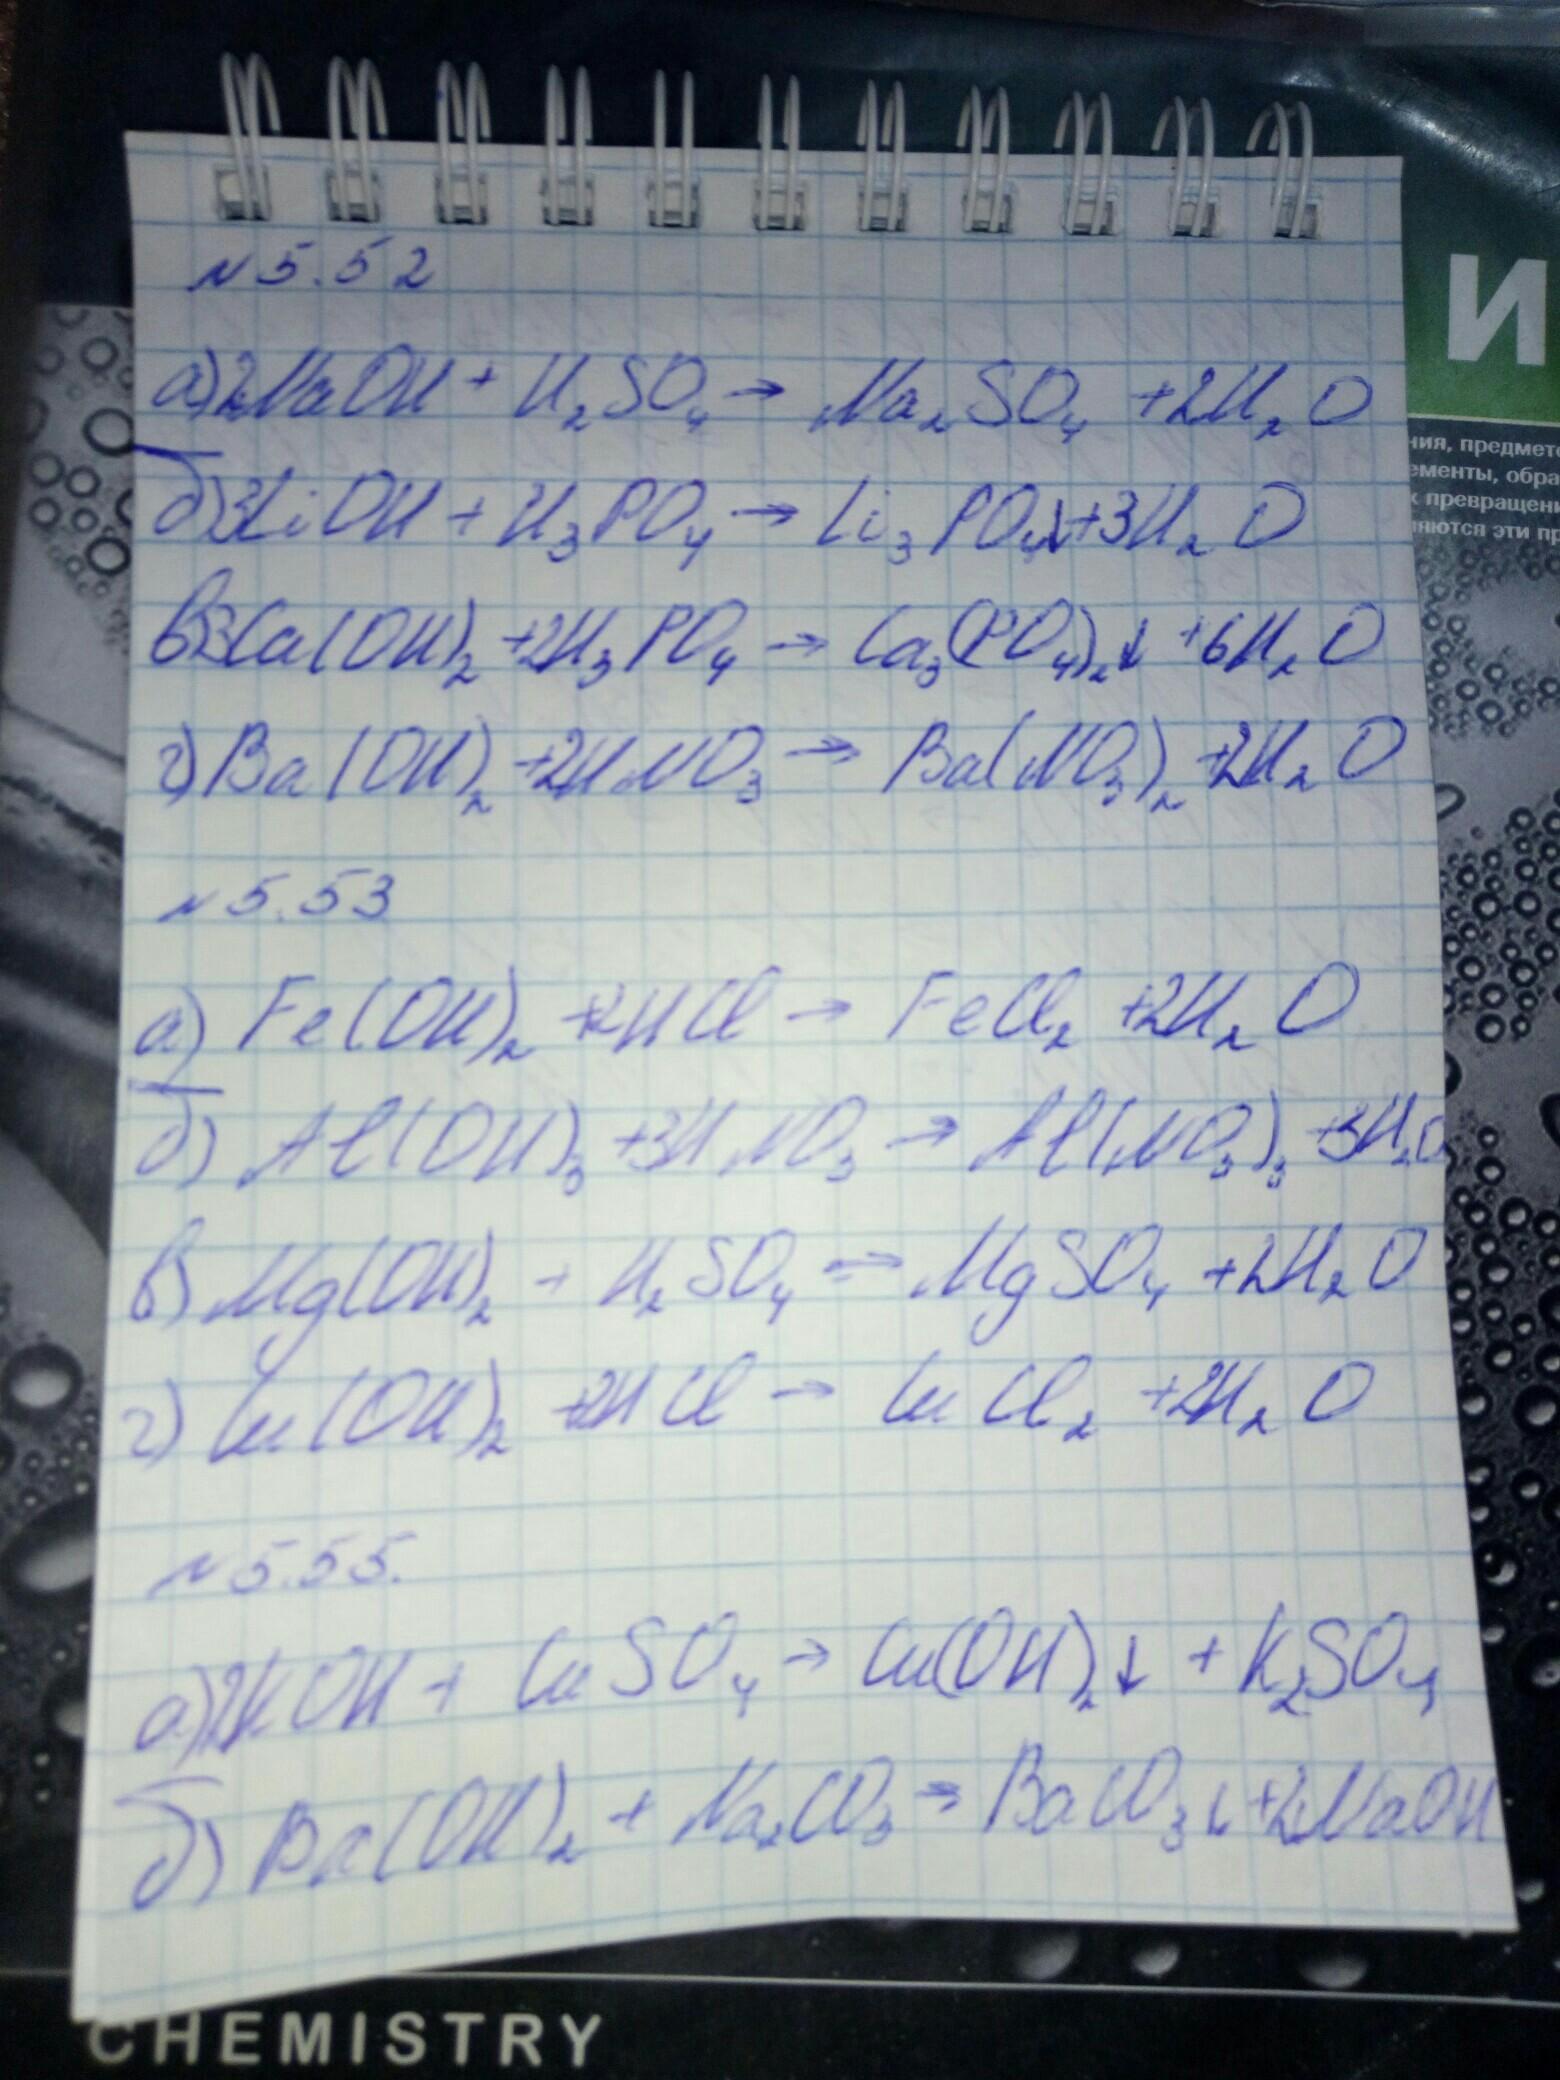 N 5.52
а) 2NaOH + H₂SO₄ → Na₂SO₄ + 2H₂O
б) 3LiOH + H₃PO₄ → Li₃PO₄↓ + 3H₂O
в) 3Ca(OH)₂ + 2H₃PO₄ → Ca₃(PO₄)₂↓ + 6H₂O
г) Ba(OH)₂ + 2HNO₃ → Ba(NO₃)₂ + 2H₂O
N 5.53
а) Fe(OH)₂ + 2HCl → FeCl₂ + 2H₂O
б) Al(OH)₃ + 3HNO₃ → Al(NO₃)₃ + 3H₂O
в) Mg(OH)₂ + H₂SO₄ → MgSO₄ + 2H₂O
г) Cu(OH)₂ + 2HCl → CuCl₂ + 2H₂O
N 5.55.
а) 2KOH + CuSO₄ → Cu(OH)₂↓ + K₂SO₄
б) Ba(OH)₂ + Na₂CO₃ → BaCO₃↓ + 2NaOH
И
ния, предмето
ементы, обра
х превращени
няются эти пр
CHEMISTRY